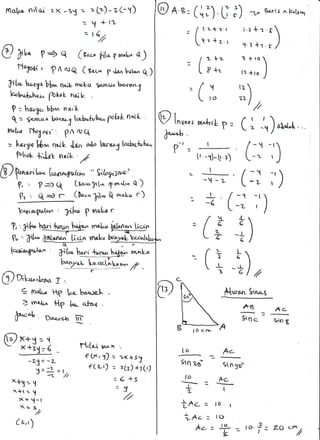 maka nilai 2x - 3y = 2(2) - 3(-4)
= 4 + 12
= 16
⑦ jika P ⇒ Q (Baca jika p maka Q)
Negasi : P ∧ ~Q (Baca p dan bukan Q)
Jika harga bbm naik maka semua barang
kebutuhan pokok naik.
P = harga bbm naik
q = semua barang kebutuhan pokok naik.
maka Negasi : p ∧ ~q
= harga bbm naik dan ada barang kebutuhan
pokok tidak naik.
⑧ Penarikan kesimpulan "Silogisme"
P₁ : P ⇒ Q (baca jika p maka Q)
P₂ : Q ⇒ r (baca jika Q maka r)
kesimpulan : jika p maka r
P₁ : jika hari turun hujan maka jalanan licin
P₂ : jika jalanan licin maka banyak kecelakaan
kesimpulan : jika hari turun hujan maka
banyak kecelakaan
⑨ Dikerjakan I :
≤ maka Hp ke bawah.
≥ maka Hp ke atas.
Jawab Daerah III
⑩ x+y = 4
x+3y = 6 -
-2y = -2
y = -2/-2 = 1
x+y = 4
x+1 = 4
x = 4-1
x = 3
(3,1)
Nilai max :
f(x,y) = 2x+3y
f(3,1) = 2(3)+3(1)
= 6 + 3
= 9
⑪ A·B = (1 2 / 4 2) · (2 3 / 1 5) → Baris x kolom
= (1·2+2·1 1·3+2·5 / 4·2+2·1 4·3+2·5)
= (2+2 3+10 / 8+2 12+10)
= (4 13 / 10 22)
⑫ Invers matrik P = (1 1 / 2 -4) adalah...
Jawab.
P⁻¹ = 1/((1·-4)-(1·2)) (-4 -1 / -2 1)
= 1/(-4-2) (-4 -1 / -2 1)
= 1/-6 (-4 -1 / -2 1)
= (4/6 1/6 / 2/6 -1/6)
= (2/3 1/6 / 1/3 -1/6)
⑬ C
30°
B 10 cm A
Aturan Sinus
AB/Sin C = AC/Sin B
10/Sin 30° = AC/Sin 90°
10/½ = AC/1
½ AC = 10 · 1
½ AC = 10
AC = 10/½ = 10 · 2/1 = 20 cm